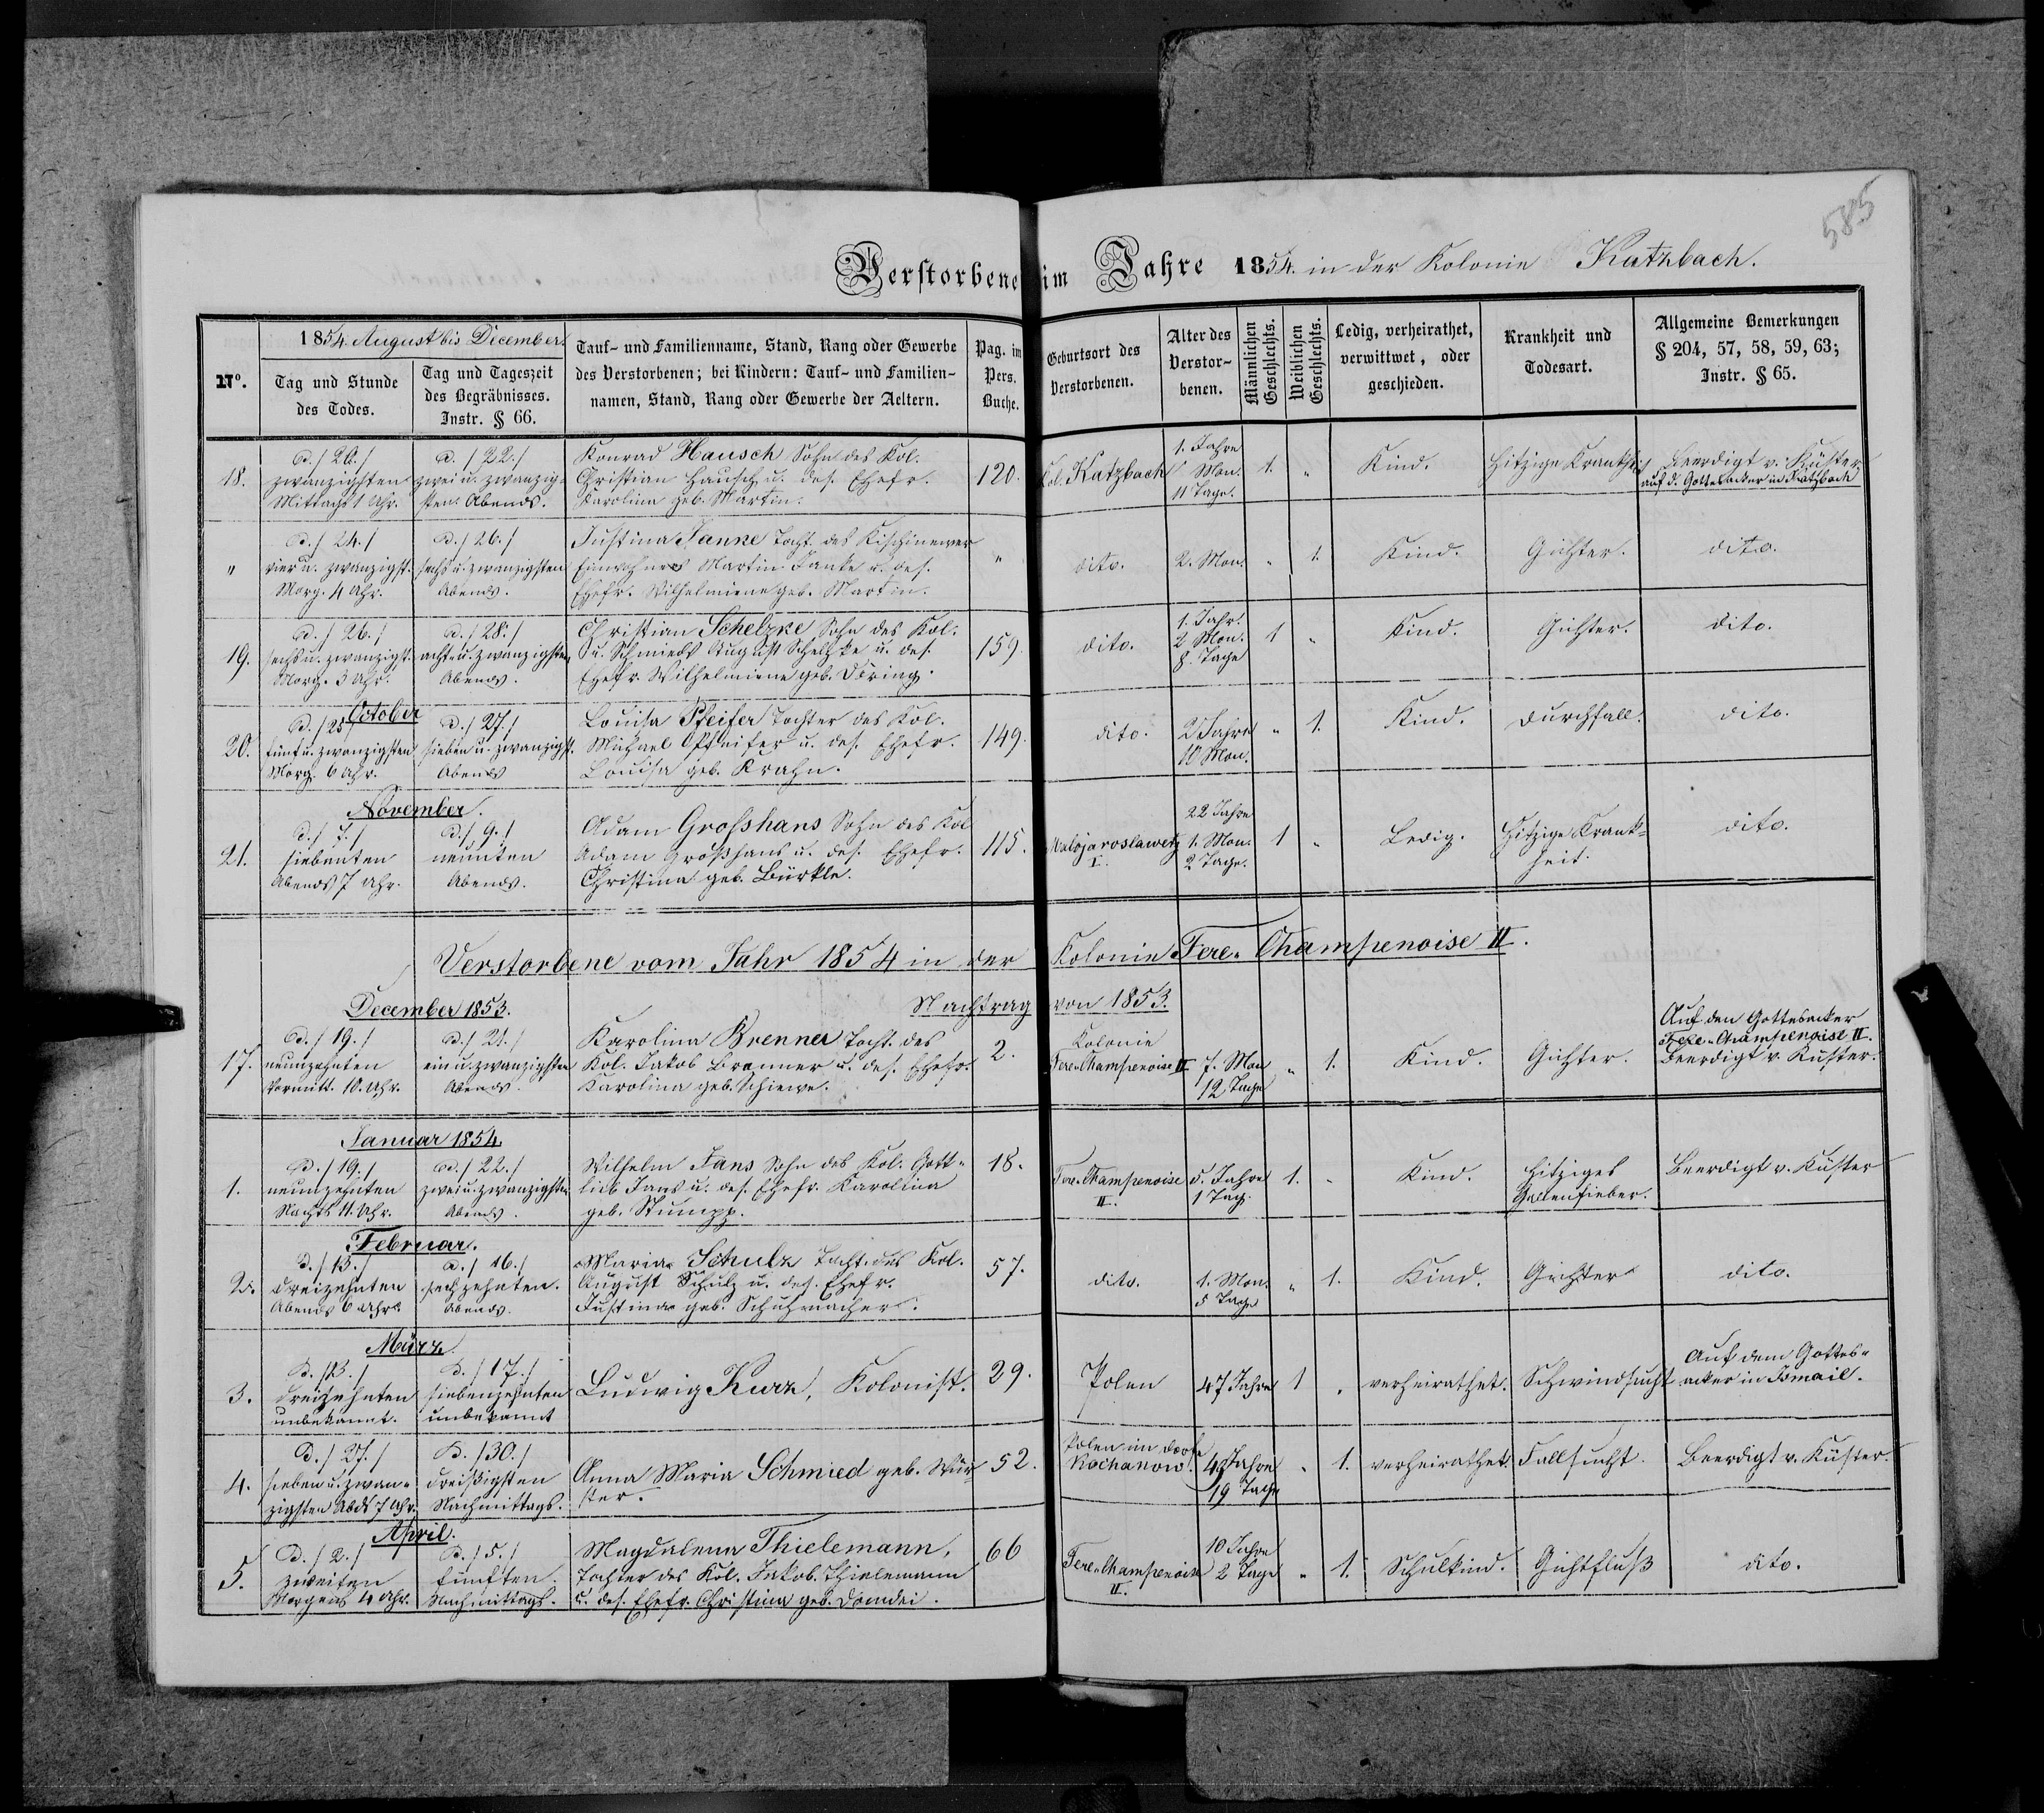 585
Verstorbene im Jahre 1854. in der Kolonie Katzbach.
No.
1854. August bis December.
Tag und Stunde des Todes.
Tag und Tageszeit des Begräbnisses. Instr. § 66.
Tauf- und Familienname, Stand, Rang oder Gewerbe
des Verstorbenen; bei Kindern: Tauf- und Familien-
namen, Stand, Rang oder Gewerbe der Aeltern.
Pag. im Pers. Buche.
Geburtsort des Verstorbenen.
Alter des Verstor- benen.
Männlichen Geschlechts.
Weiblichen Geschlechts.
Ledig, verheirathet, verwittwet, oder geschieden.
Krankheit und Todesart.
Allgemeine Bemerkungen § 204, 57, 58, 59, 63; Instr. § 65.
18.
d. /20./
zwanzigsten
Mittachs 1 Uhr.
d. /22./
zwei u. zwanzig-
sten. Abends.
Konrad Hausch Sohn des Kol.
Christian Hausch u. des. Ehefr.
Karolina geb. Martin.
120.
Kol. Katzbach
1. Jahre
Mon.
11 Tage.
1. "
Kind.
Hitzige Krankheit
Beerdigt v. Küster
auf d. Gottesacker in Katzbach
"
d. /24./
vier u. zwanzigst.
Morg. 4 Uhr.
d. /26./
sechs u. zwanzigsten
Abends.
Justina Janke Tocht. des Kischinewer
Einwohners Martin Janke u. des.
Ehefr. Wilhelmiene geb. Martin.
"
dito.
2. Mon.
" 1.
Kind.
Gichter.
dito.
19.
d. /26./
sechs u. zwanzigst.
Morg. 3 Uhr.
d. /28./
acht u. zwanzigsten
Abends.
Christian Schelzke Sohn des Kol.
u. Schmieds August Schelzke u. des.
Ehefr. Wilhelmiene geb. Döring.
159.
dito.
1. Jahr.
2 Mon.
8. Tage
1 "
Kind.
Gichter.
dito.
October
20.
d. /25/
fünf u. zwanzigsten
Morg. 6 Uhr.
d. /27./
sieben u. zwanzigst.
Abends
Louisa Pfeifer Tochter des Kol.
Michael Pfeifer u. des. Ehefr.
Louisa geb. Krahn.
149.
dito.
2 Jahre
10 Mon.
" 1.
Kind.
Durchfall.
dito.
November.
21.
d. /7./
siebenten
Abends 7 Uhr.
d. /9./
neunten
Abends.
Adam Grosshans Sohn des Kol
Adam Großhans u. des. Ehefr.
Christina geb. Bürkle.
115.
Malojaroslawetz
I.
22 Jahre
1. Mon.
2 Tage.
1 "
Ledig.
Hitzige Krank-
heit.
dito.
Verstorbene vom Jahr 1854 in der Kolonie Fere-Champenoise II.
Nachtrag von 1853.
December 1853.
17.
d. /19./
neunzehnten
Vormitt. 10. Uhr.
d. /21./
ein u. zwanzigsten
Abends.
Karolina Brenner Tocht. des
Kol. Jakob Brenner u. des. Ehefr.
Karolina geb. Schiewe.
2.
Kolonie
Fere-Champenoise II
7. Mon
12 Tage
" 1.
Kind.
Gichter.
Auf den Gottesacker
Fere-Champenoise II.
Beerdigt v. Küster.
Januar 1854.
1.
d. /19./
neunzehnten
Nachts 11. Uhr.
d. /22./
zwei u. zwanzigsten
Abends.
Wilhelm Jans Sohn des Kol. Gott-
lieb Jans u. des. Ehefr. Karolina
geb. Stumpp.
18.
Fere-Champenoise
II.
5. Jahre
1 Tag.
1. "
Kind.
Hitziges
Gallenfieber.
Beerdigt v. Küster
Februar.
2.
d. /13./
dreizehnten
Abends 6 Uhr.
d. /16./
sechzehnten.
Abends.
Maria Schulz Tocht. des Kol.
August Schulz u. des. Ehefr.
Justina geb. Schuhmacher.
57.
dito.
1. Mon.
5 Tage
" 1.
Kind.
Gichter
dito.
März.
3.
d. /13./
dreizehnten
unbekannt.
d. /17./
siebenzehnten
unbekannt
Ludwig Kurz, Kolonist.
29.
Polen
47 Jahre
1 "
verheirathet.
Schwindsucht
Auf dem Gottes-
acker in Ismail.
4.
d. /27./
sieben u. zwan-
zigsten Abds 7 Uhr.
d. /30./
dreißigsten
Nachmittags.
Anna Maria Schmied geb. Wür-
ster.
52.
Polen im Dorfe
Kochanow.
Jahre
19 Tage
" 1.
verheirathet
Fallsucht.
Beerdigt v. Küster.
April.
5.
d. /2./
zweiten
Morgens 4 Uhr.
d. /5./
fünften.
Nachmittags.
Magdalena Thielemann,
Tochter des Kol. Jakob Thielemann
u. des. Ehefr. Christina geb. Domdei.
66
Fere-Champenoise
II.
10 Jahre
2 Tage
" 1.
Schulkind.
Gichtfluß
dito.